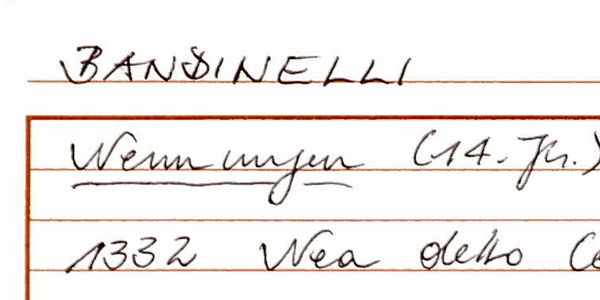 BANDINELLI
Nennungen (14. Jh.)
1332 Nea detto